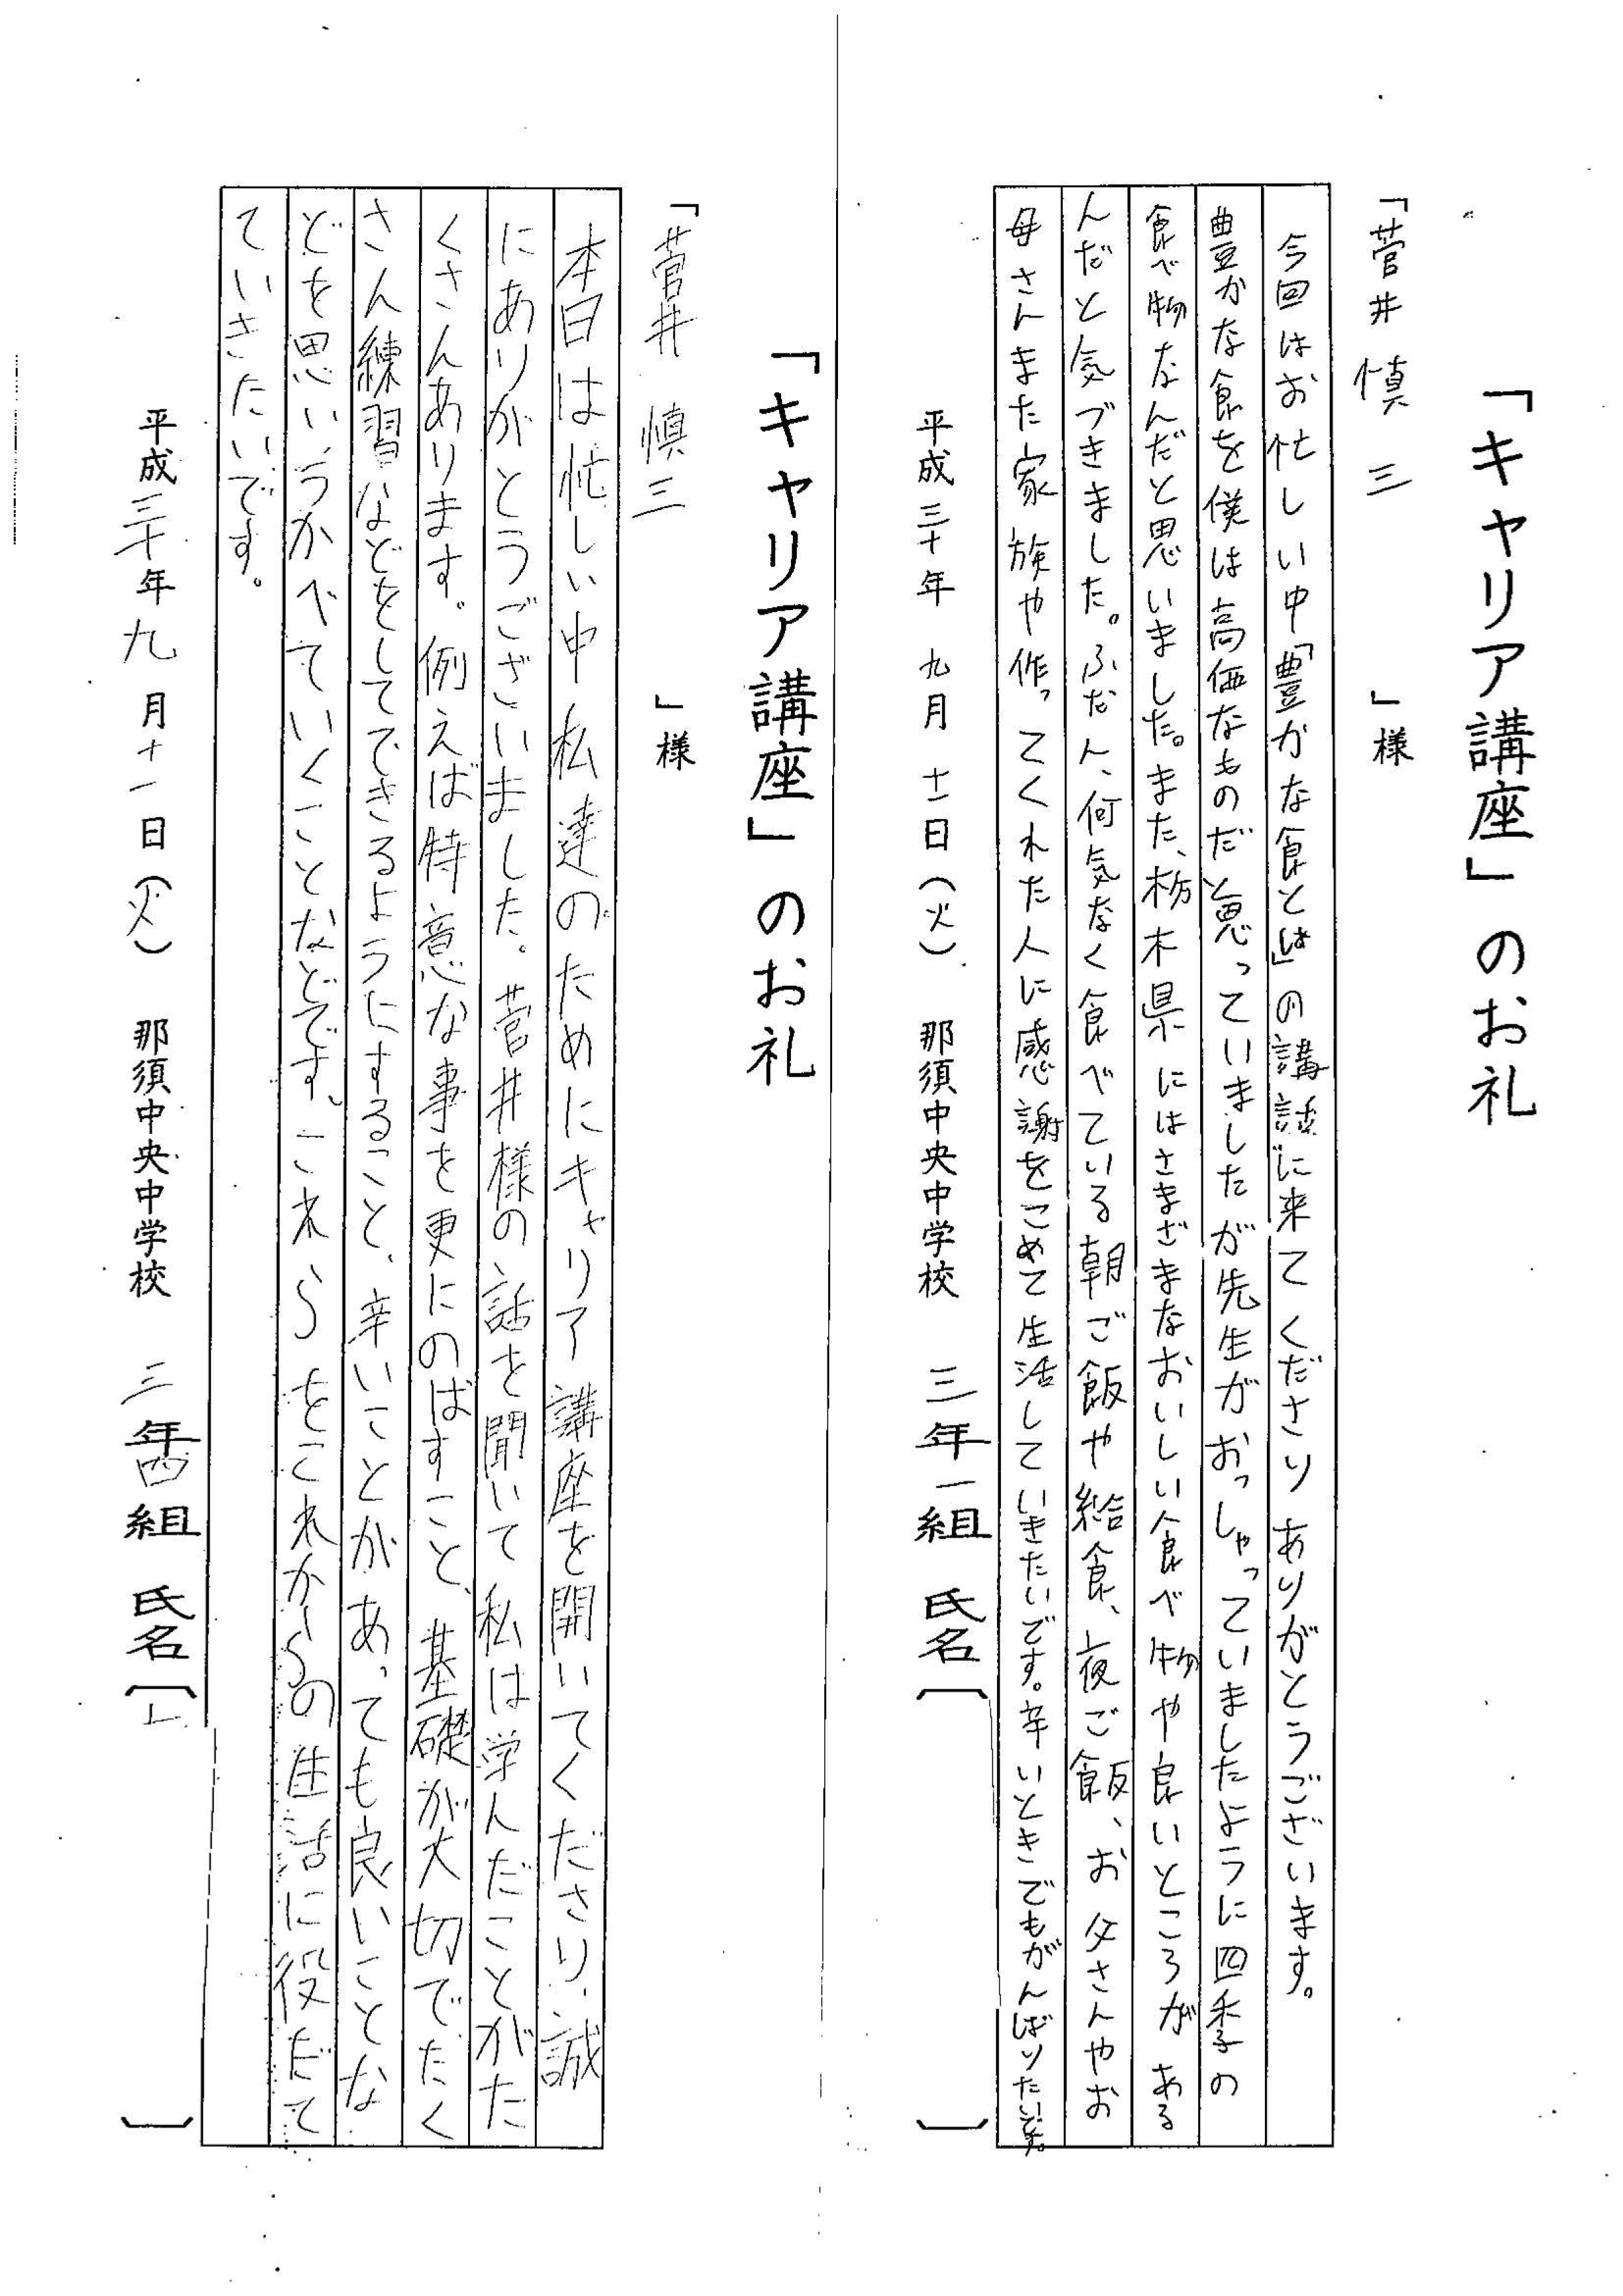 「キャリア講座」のお礼
「菅井 慎三 」様
今回はお忙しい中「豊かな食とは」の講話に来てくださりありがとうございます。
豊かな食を僕は高価なものだと思っていましたが先生がおっしゃっていましたように四季の
食べ物なんだと思いました。また、栃木県にはさまざまなおいしい食べ物や良いところがある
んだと気づきました。ふだん、何気なく食べている朝ご飯や給食、夜ご飯、お父さんやお
母さんまた家族や作ってくれた人に感謝をこめて生活していきたいです。辛いときでもがんばりたいです。
平成三十年 九月 十一日(火) 那須中央中学校 三年一組 氏名〔 〕
「キャリア講座」のお礼
「菅井 慎三 」様
本日は忙しい中私達のためにキャリア講座を開いてくださり、誠
にありがとうございました。菅井様の話を聞いて私は学んだことがた
くさんあります。例えば特意な事を更にのばすこと、基礎が大切でたく
さん練習などをしてできるようにすること、辛いことがあっても良いことな
どを思いうかべていくことなどです。これらをこれからの生活に役だて
ていきたいです。
平成三十年九月十一日(火) 那須中央中学校 三年四組 氏名〔 〕